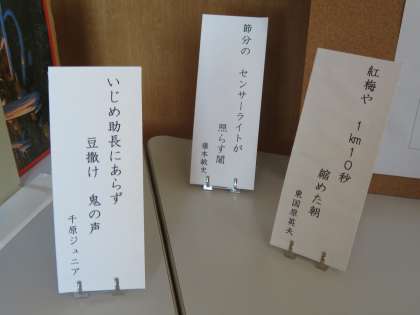 紅梅や　1km10秒
縮めた朝
東国原英夫
節分の　センサーライトが
照らす闇
藤本敏史
いじめ助長にあらず
豆撒け　鬼の声
千原ジュニア